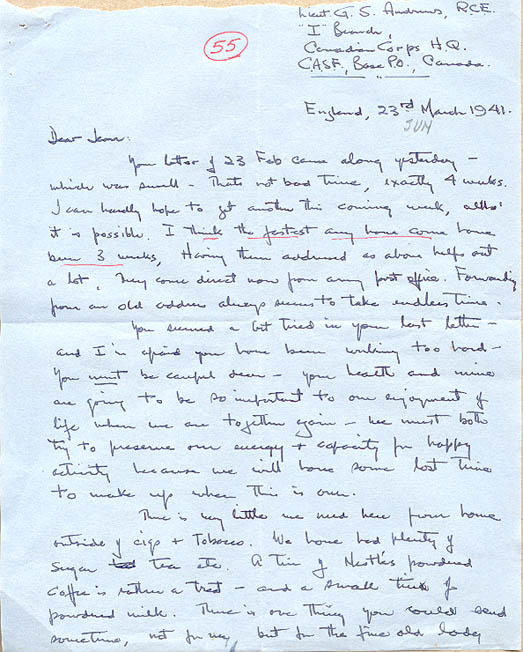 Lieut. G. S. Andrews, R.C.E.
"I" Branch,
Canadian Corps H.Q.
CASF, Base P.O., Canada.
55
England, 23rd March 1941.
JUN
Dear Jean:
Your letter of 23 Feb came along yesterday -
which was swell - That's not bad time, exactly 4 weeks.
I can hardly hope to get another this coming week, altho'
it is possible. I think the fastest any have come have
been 3 weeks, Having them addressed as above helps out
a lot, They come direct now from army post office. Forwarding
from an old address always seems to take endless time.
You seemed a bit tired in your last letter -
and I'm afraid you have been working too hard -
You must be careful dear - your health and mine
are going to be so important to our enjoyment of
life when we are together again - we must both
try to preserve our energy + capacity for happy
activity because we will have some lost time
to make up when this is over.
There is very little we need here from home
outside of cigs + Tobacco. We have had plenty of
sugar tea etc. A tin of Nestlés powdered
Coffee is rather a treat - and a small tin of
powdered milk. There is one thing you could send
sometime, not for me, but for the fine old lady